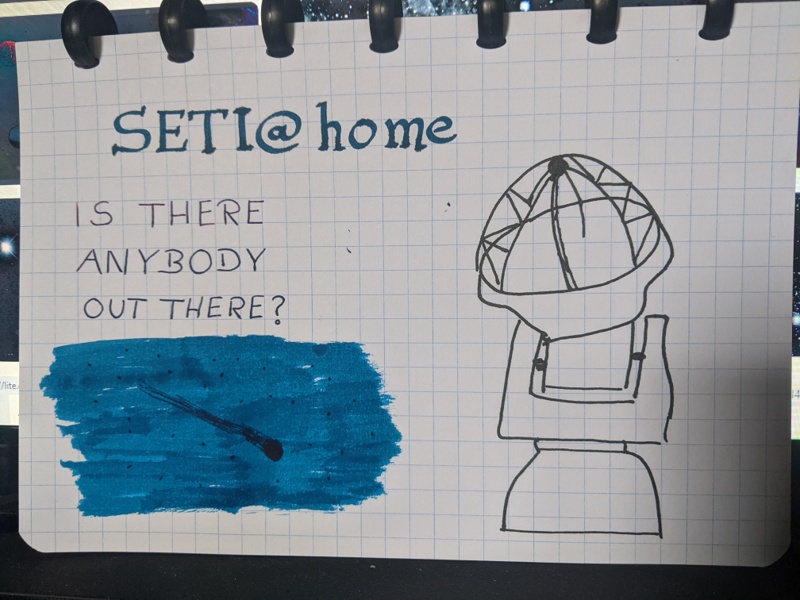 SETI@home
IS THERE
ANYBODY
OUT THERE?